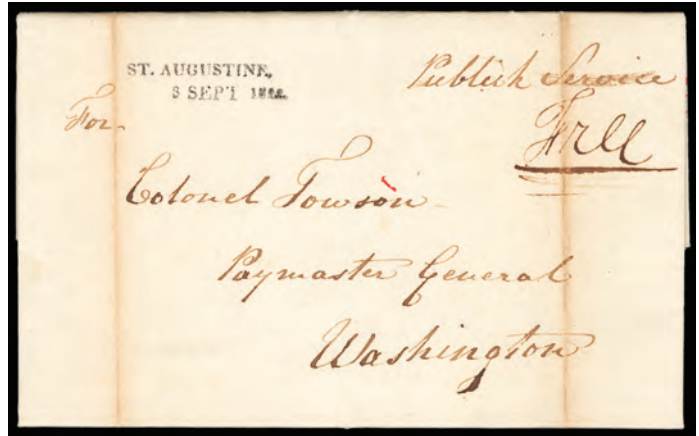 ST. AUGUSTINE,
3 SEPT 1822.
Publick Service
Free
For
Colonel Towson
Paymaster General
Washington